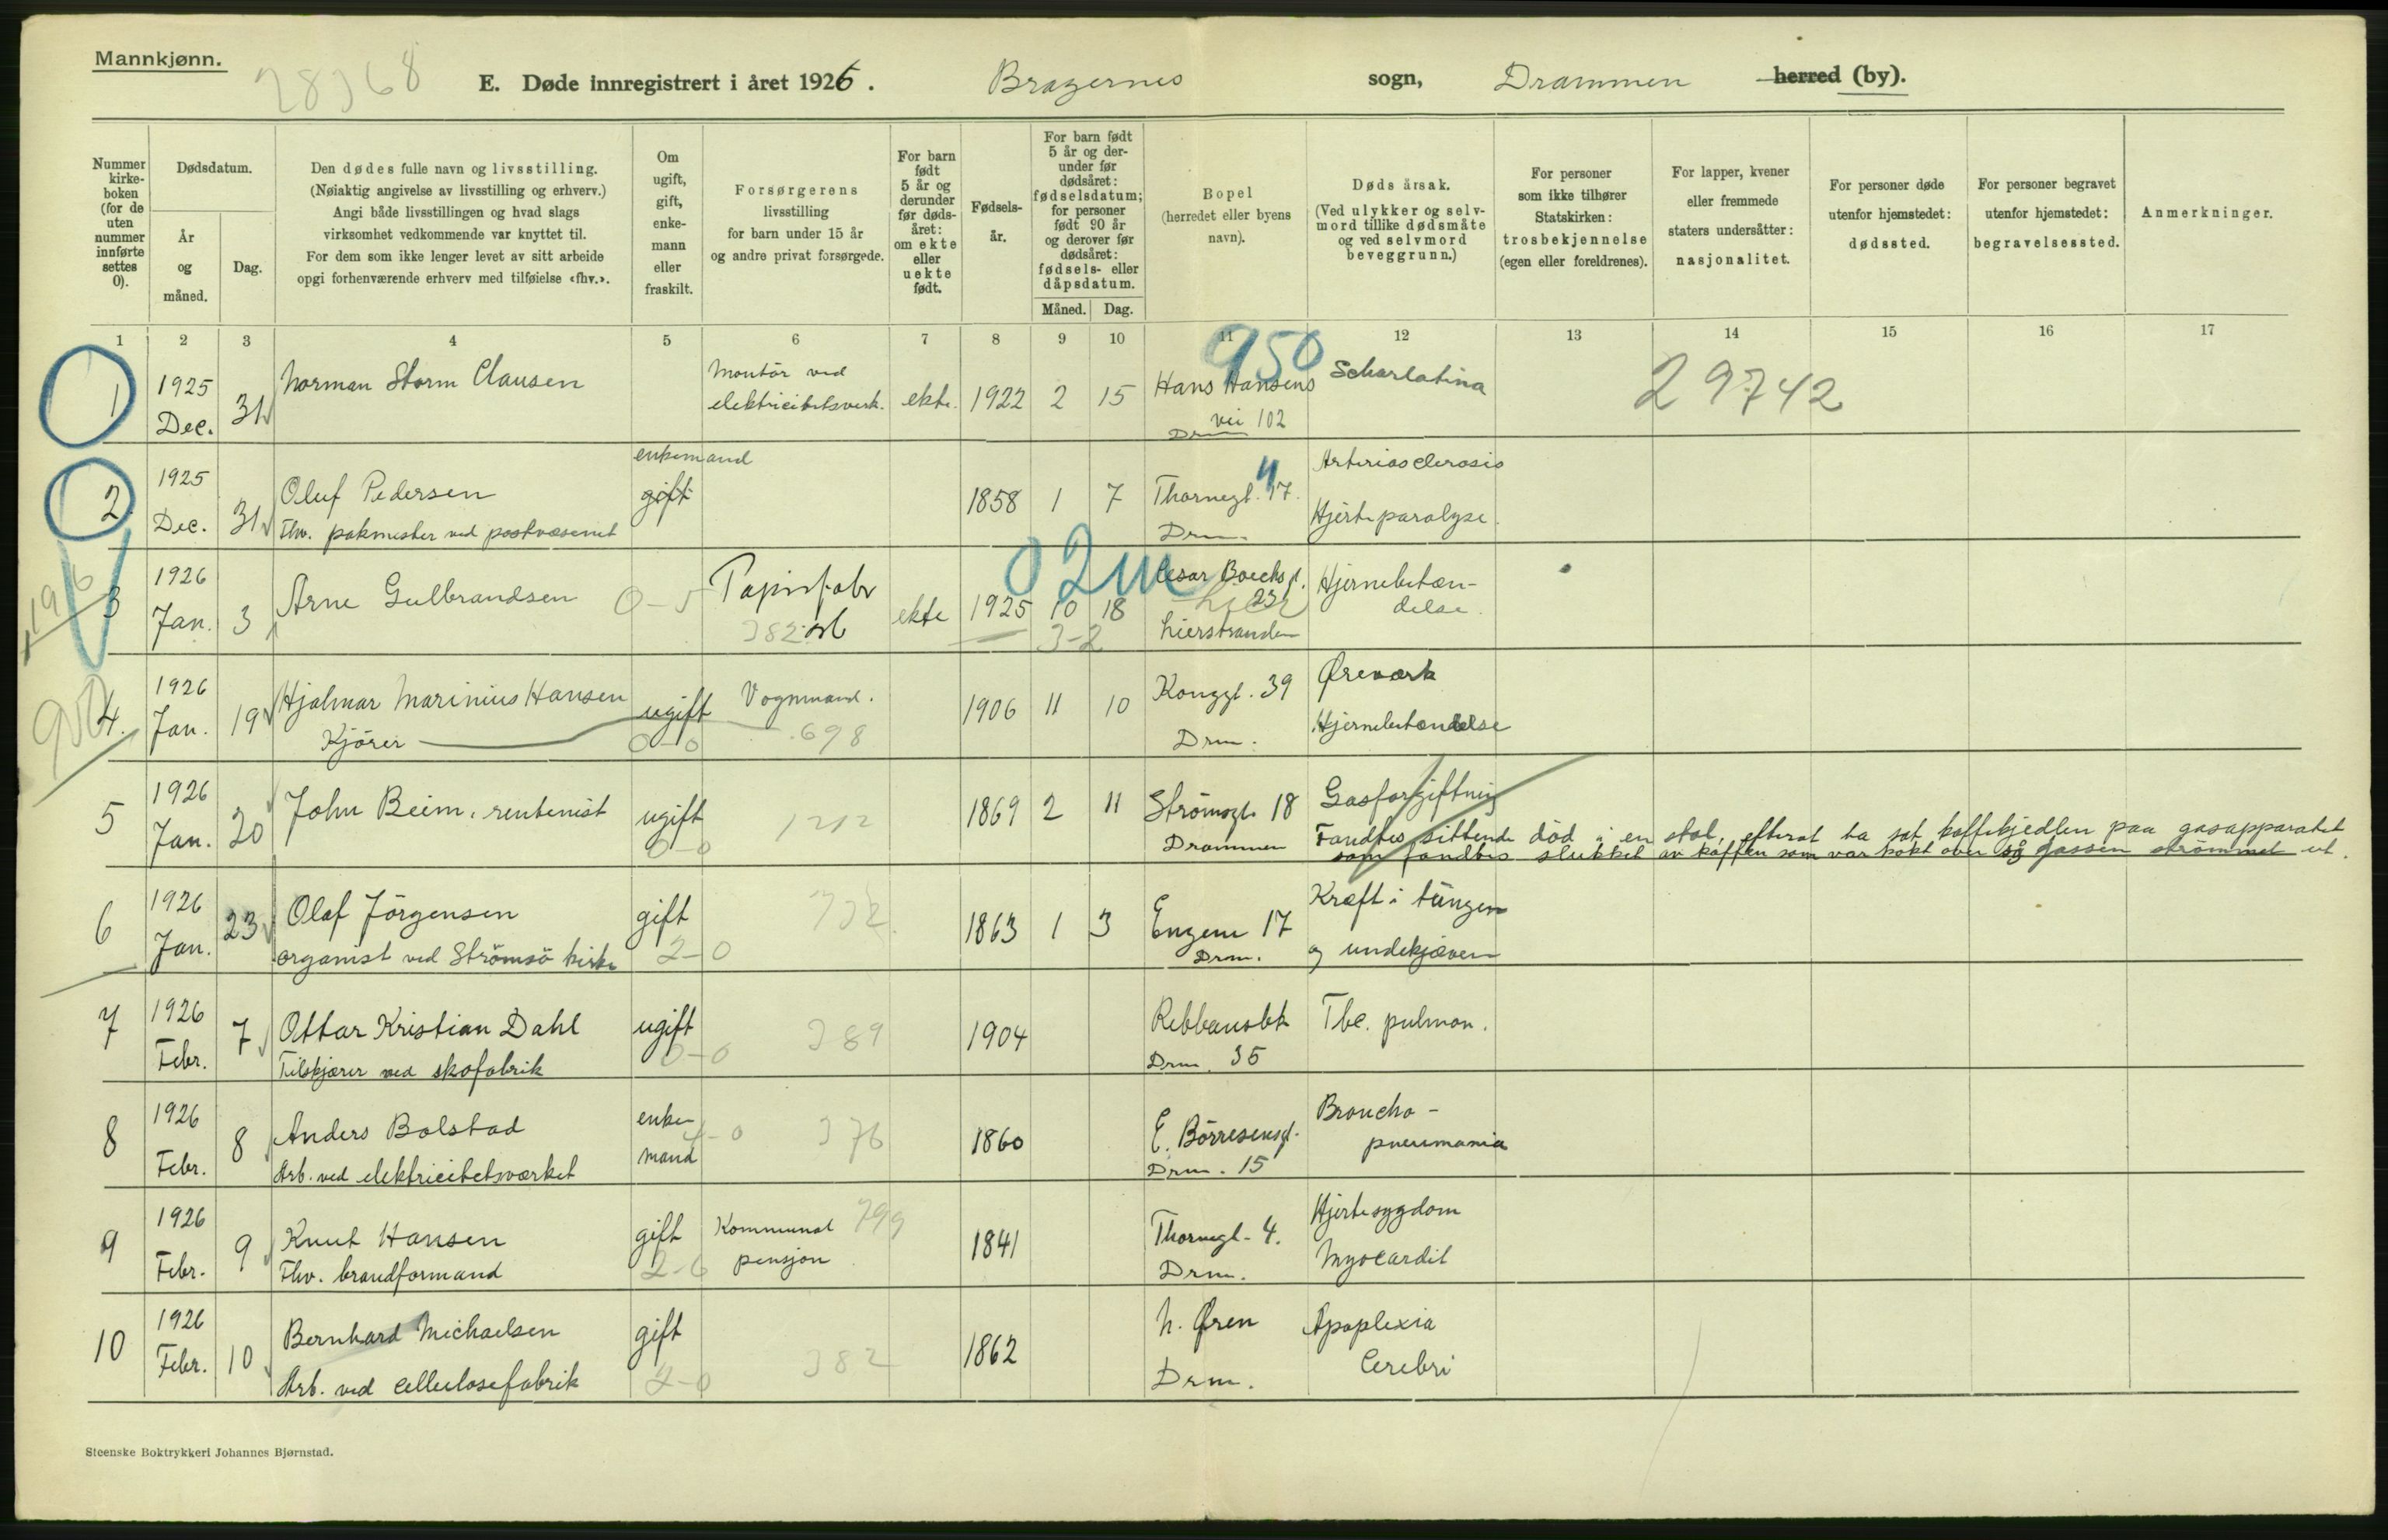 Mannkjønn.
28368
E. Døde innregistrert i året 1926. Bragernes sogn, Drammen herred (by).
Nummer kirke- boken (for de uten nummer innførte settes 0).
Dødsdatum.
År og måned.
Dag.
Den dødes fulle navn og livsstilling.
(Nøiaktig angivelse av livsstilling og erhverv.)
Angi både livsstillingen og hvad slags
virksomhet vedkommende var knyttet til.
For dem som ikke lenger levet av sitt arbeide
opgi forhenværende erhverv med tilføielse «fhv.».
Om ugift, gift, enke- mann eller fraskilt.
Forsørgerens
livsstilling
for barn under 15 år
og andre privat forsørgede.
For barn født 5 år og derunder før døds- året: om ekte eller uekte født.
Fødsels- år.
For barn født 5 år og der- under før dødsåret: fødselsdatum; for personer født 90 år og derover før dødsåret: fødsels- eller dåpsdatum.
Måned. Dag.
Bopel
(herredet eller byens
navn).
Døds årsak.
(Ved ulykker og selv-
mord tillike dødsmåte
og ved selvmord
beveggrunn.)
For personer
som ikke tilhører
Statskirken:
trosbekjennelse
(egen eller foreldrenes).
For lapper, kvener
eller fremmede
staters undersåtter:
nasjonalitet.
For personer døde
utenfor hjemstedet:
dødssted.
For personer begravet
utenfor hjemstedet:
begravelsessted.
Anmerkninger.
1 2 3 4 5 6 7 8 9 10 11 12 13 14 15 16 17
950
1 1925 Dec. 31 Norman Storm Clausen
Montör ved
elektricitetsverk. ekte. 1922 2 15 Hans Hansens
vei 102
Drm
Scharlatina
29742
2 1925 Dec. 31 Oluf Pedersen
Fhv. pakmester ved postvæsenet
enkemand
gift
1858 1 7 Thornegt. 17. 4
Drm.
Arteriosclerosis
Hjerteparalyse.
3 1926 Jan. 3 Arne Gulbrandsen 0-5
Papirfabr
382
ekte 1925 10 18
3-2
02m
Cesar Boecks gt.
23
Lier
Lierstranden
Hjernebetæn-
delse.
4. 1926 Jan. 19 Hjalmar Marinius Hansen
Kjörer
ugift
0-0
Vognmand.
698
1906 11 10 Konggt. 39
Drm.
Øreværk
Hjernebetændelse
5 1926 Jan. 20 John Beim, rentenist
ugift
0-0
1212
1869 2 11 Strömsgt. 18
Drammen
Gasforgiftning
Fandtes sittende död i en stol, efterat ha sat kaffekjedlen paa gasapparatet
som fandtes slukket av kaffen som var kokt over så gassen strömmet ut.
6 1926 Jan. 23 Olaf Jörgensen
organist ved Strömsö kirke
gift
2-0
732
1863 1 3 Engene 17
Drm.
Kræft i tungen
og undekjæven
7 1926 Febr. 7 Ottar Kristian Dahl
Tilskjærer ved skofabrik
ugift
0-0
389
1904
Drm. 35
Tbc. pulmon.
8 1926 Febr. 8 Anders Bolstad
Arb. ved elektricitetsværket
enke
mand
376
1860 E. Börresensgt.
Drm. 15
Broncho-
pneumonia
9 1926 Febr. 9 Knut Hansen
Fhv. brandformand
gift
2-6
Kommunal
pensjon
799
1841 Thornegt. 4.
Drm.
Hjertesygdom
Myocardit
10 1926 Febr. 10 Bernhard Michaelsen
Arb. ved cellulosefabrik
gift
2-0
382
1862 N. Øren
Drm.
Apoplexia
Cerebri
Steenske Boktrykkeri Johannes Bjørnstad.